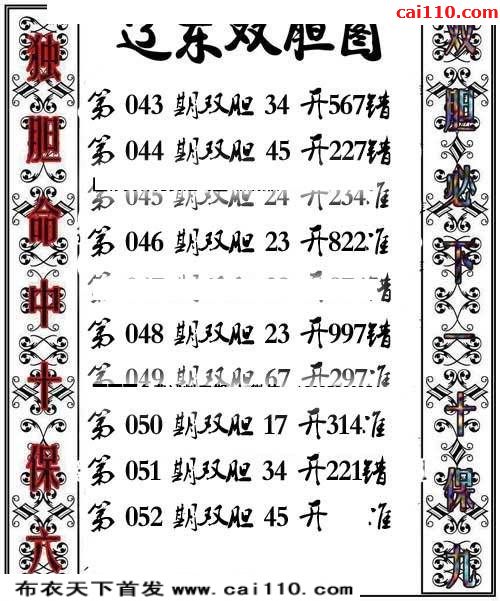 cai110.com
辽东双胆图
独胆命中十保六
双胆必下一十保九
第 043 期双胆 34 开567错
第 044 期双胆 45 开227错
第 045 期双胆 24 开234准
第 046 期双胆 23 开822准
错
第 048 期双胆 23 开997错
第 049 期双胆 67 开297准
第 050 期双胆 17 开314准
第 051 期双胆 34 开221错
第 052 期双胆 45 开 准
布衣天下首发 www.cai110.com